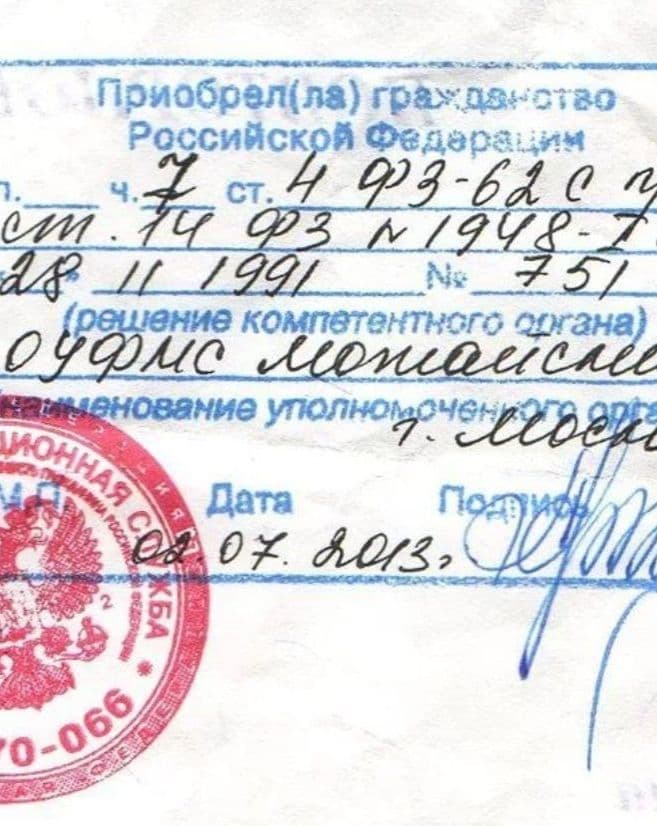 Приобрел(ла) гражданство
Российской Федерации
п. ч. 7 ст. 4 ФЗ-62 с у
ст. 14 ФЗ N 1948-I
28 11 1991 № 751
(решение компетентного органа)
ОУФМС Можайск
(наименование уполномоченного орга
г. Моск
М.П. Дата Подпись
02.07.2013г
ЦИОННАЯ СЛУЖБА
2
70-066